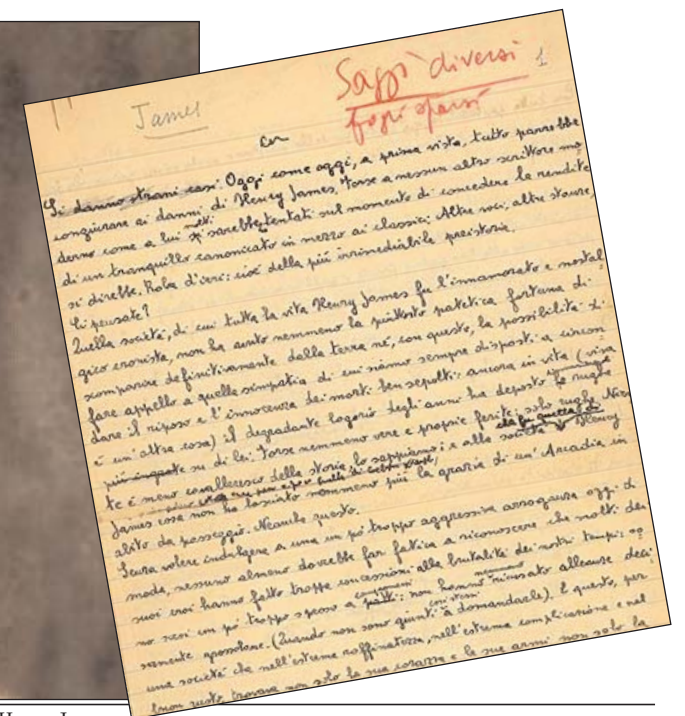 Saggi diversi
1
James
fogli sparsi
Si danno strani casi. Oggi come oggi, a prima vista, tutto parrebbe
congiurare ai danni di Henry James, forse a nessun altro scrittore mo
derno come a lui molti sarebbero tentati sul momento di concedere la rendita
di un tranquillo canonicato in mezzo ai classici: Altre voci, altre stanze,
si direbbe. Roba d'ieri: cioè della più irrimediabile preistoria.
Ci pensate?
Quella società, di cui tutta la vita Henry James fu l'innamorato e nostal
gico cronista, non ha avuto nemmeno la piuttosto patetica fortuna di
scomparire definitivamente dalla terra né, con questo, la possibilità di
fare appello a quella simpatia di cui siamo sempre disposti a circon
dare il riposo e l'innocenza dei morti ben sepolti: ancora in vita (viva
è un'altra cosa) il degradante logorio degli anni ha deposto le rughe
su di lei. Forse nemmeno vere e proprie ferite: solo rughe. Nien
te è meno cavalleresco della storia, lo sappiamo: e alla società di Henry
James essa non ha lasciato nemmeno più la grazia di un'Arcadia in
abito da passeggio. Neanche questo.
Senza volere indulgere a una un po' troppo aggressiva arroganza oggi di
moda, nessuno almeno dovrebbe far fatica a riconoscere che molti dei
suoi eroi hanno fatto troppe concessioni alla brutalità dei nostri tempi: so
no scesi un po' troppo spesso a patti: non hanno nemmeno ricusato alleanze deci
samente grossolane. (Quando non sono giunti a domandarle). E questo, per
una società che nell'estrema raffinatezza, nell'estrema complicazione e nel
buon gusto trovava non solo le sue corazze e le sue armi non solo la